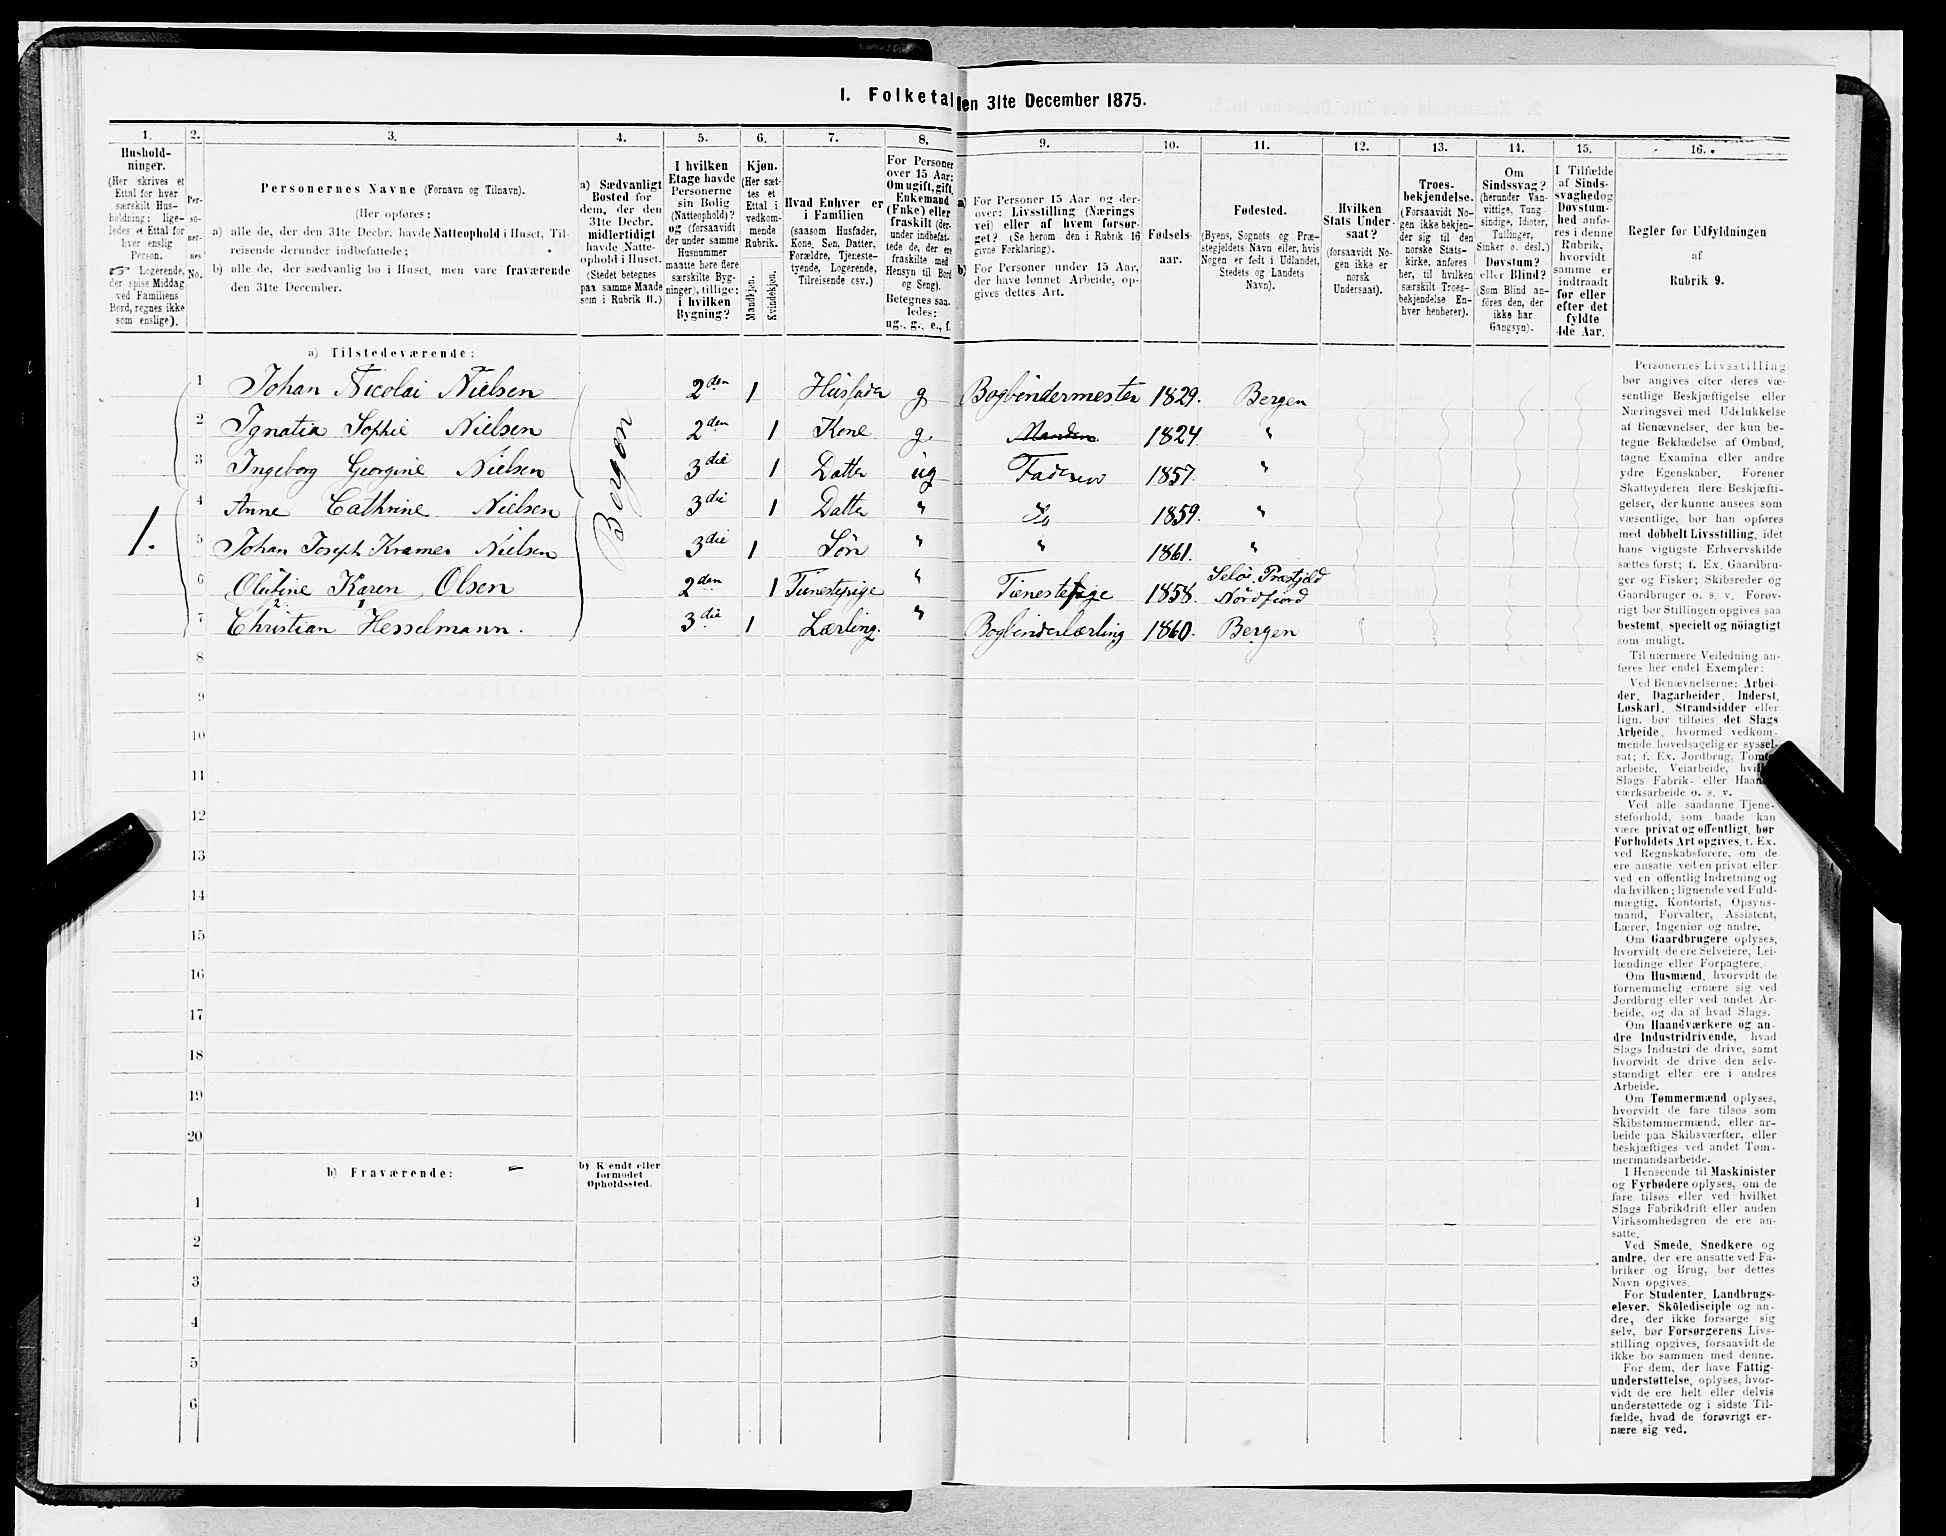 I. Folketal den 31te December 1875.
1.
Hushold-
ninger.
(Her skrives et
Ettal for hver
særskilt Hus-
holdning; lige-
ledes et Ettal for
hver enslig
Person.
☞ Logerende,
der spise Middag
ved Familiens
Bord, regnes ikke
som enslige).
2.
Per-
so-
ner-
nes
No.
3.
Personernes Navne (Fornavn og Tilnavn).
(Her opføres:
a) alle de, der den 31te Decbr. havde Natteophold i Huset, Til-
reisende derunder indbefattede;
b) alle de, der sædvanlig bo i Huset, men vare fraværende
den 31te December.
4.
a) Sædvanligt
Bosted for
dem, der den
31te Decbr.
midlertidigt
havde Natte-
ophold i Huset.
(Stedet betegnes
paa samme Maade
som i Rubrik 11.)
5.
I hvilken
Etage havde
Personerne
sin Bolig
(Natteophold)?
og (forsaavidt
der under samme
Husnummer
maatte høre flere
særskilte Byg-
ninger), tillige:
i hvilken
Bygning?
6.
Kjøn.
(Her sæt-
tes et
Ettal i
vedkom-
mende
Rubrik.
Mandkjøn.
Kvindekjøn.
7.
Hvad Enhver er
i Familien
(saasom Husfader,
Kone, Søn, Datter,
Forældre, Tjeneste-
tyende, Logerende,
Tilreisende osv.)
8.
For Personer
over 15 Aar:
Om ugift, gift,
Enkemand
(Enke) eller
fraskilt (der-
under indbefat-
tede de, der er
fraskilte med
Hensyn til Bord
og Seng).
Betegnes saa-
ledes:
ug., g., e., f.
9.
a) For Personer 15 Aar og der-
over: Livsstilling (Nærings
vei) eller af hvem forsør-
get? (Se herom den i Rubrik 16
givne Forklaring).
b) For Personer under 15 Aar,
der have lønnet Arbeide, op-
gives dettes Art.
10.
Fødsels-
aar.
11.
Fødested.
(Byens, Sognets og Præ-
stegjeldets Navn eller, hvis
Nogen er født i Udlandet,
Stedets og Landets
Navn).
12.
Hvilken
Stats Under-
saat?
(forsaavidt No-
gen ikke er
norsk
Undersaat).
13.
Troes-
bekjendelse.
(Forsaavidt No-
gen ikke bekjen-
der sig til den
norske Stats-
kirke, anføres
her, til hvilken
særskilt Troes-
bekjendelse En-
hver henhører).
14.
Om
Sindssvag?
(herunder Van-
vittige, Tung-
sindige, Idioter,
Tullinger,
Sinker o. desl.)
Døvstum?
eller Blind?
(Som Blind an-
føres den, der
ikke har
Gangsyn).
15.
I Tilfælde
af Sinds-
svaghed og
Døvstum-
hed anfø-
res i denne
Rubrik,
hvorvidt
samme er
indtraadt
før eller
efter det
fyldte
4de Aar.
16.
Regler før Udfyldningen
af
Rubrik 9.
a) Tilstedeværende:
1.
Bergen
1 Johan Nicolai Nielsen 2den 1 Husfader g Bogbindermester 1829. Bergen
2 Ignatia Sophie Nielsen 2den 1 Kone g. Manden 1824 "
3 Ingeborg Georgine Nielsen 3die 1 Datter ug Faderen 1857. "
4 Anne Cathrine Nielsen 3die 1 Datter " Do 1859. "
5 Johan Joseph Kramer Nielsen 3die 1 Søn " " 1861. "
6 Olufine Karen Olsen 2den 1 Tienestepige " Tienestepige 1858. Seløe Præstgjeld
Nordfiord
7 Christian Hesselmann. 3die 1 Lærling. " Bogbinderlærling 1860. Bergen
8
9
10
11
12
13
14
15
16
17
18
19
20
b) Fraværende: –
b) Kjendt eller
formodet
Opholdssted.
1
2
3
4
5
6
Personernes Livsstilling
bør angives efter deres væ-
sentlige Beskjæftigelse eller
Næringsvei med Udelukkelse
af Benævnelser, der kun be-
tegne Beklædelse af Ombud,
tagne Examina eller andre
ydre Egenskaber. Forener
Skatteyderen flere Beskjæfti-
gelser, der kunne ansees som
væsentlige, bør han opføres
med dobbelt Livsstilling, idet
hans vigtigste Erhvervskilde
sættes først; f. Ex. Gaardbru-
ger og Fisker; Skibsreder og
Gaardbruger o. s. v. Forøv-
rigt bør Stillingen opgives saa
bestemt, specielt og nöiagtigt
som muligt.
Til nærmere Veiledning an-
føres her endel Exempler:
Ved Benævnelserne: Arbei-
der, Dagarbeider, Inderst,
Løskarl, Strandsidder eller
lign. bør tilføies det Slags
Arbeide, hvormed vedkom-
mende hovedsagelig er syssel-
sat; f. Ex. Jordbrug, Tomte-
arbeide, Veiarbeide, hvilket
Slags Fabrik- eller Haand-
værksarbeide o. s. v.
Ved alle saadanne Tjene-
steforhold, som baade kan
være privat og offentligt, bør
Forholdets Art opgives, f. Ex.
ved Regnskabsførere, om de
ere ansatte ved en privat eller
ved en offentlig Indretning og
da hvilken; lignende ved Fuld-
mægtig, Kontorist, Opsyns-
mand, Forvalter, Assistent,
Lærer, Ingeniør og andre.
Om Gaardbrugere oplyses,
hvorvidt de ere Selveiere, Lei-
lændinge eller Forpagtere.
Om Husmænd, hvorvidt de
fornemmelig ernære sig ved
Jordbrug eller ved andet Ar-
beide, og da af hvad Slags.
Om Haandværkere og an-
dre Industridrivende, hvad
Slags Industri de drive, samt
hvorvidt de drive den selv-
stændigt eller ere i andres
Arbeide.
Om Tømmermænd oplyses,
hvorvidt de fare tilsøs som
Skibstømmermænd, eller ar-
beide paa Skibsværfter, eller
beskjæftiges ved andet Tøm-
mermandsarbeide.
I Henseende til Maskinister
og Fyrbødere oplyses, om de
fare tilsøs eller ved hvilket
Slags Fabrikdrift eller anden
Virksomhedsgren de ere an-
satte.
Ved Smede, Snedkere og
andre, der ere ansatte ved Fa-
briker og Brug, bør dettes
Navn opgives.
For Studenter, Landbrugs-
elever, Skoledisciple og an-
dre, der ikke forsørge sig
selv, bør Forsørgerens Livs-
stilling opgives, forsaavidt de
ikke bo sammen med denne.
For dem, der have Fattig-
understøttelse, oplyses, hvor-
vidt de ere helt eller delvis
understøttede og i sidste Til-
fælde, hvad de forøvrigt er-
nære sig ved.